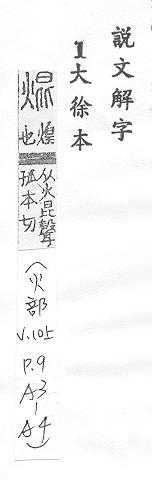 說文解字
1大徐本
焜
煌也
从火昆聲
孤本切
(火部
V.105
P.9
A3-
A4)